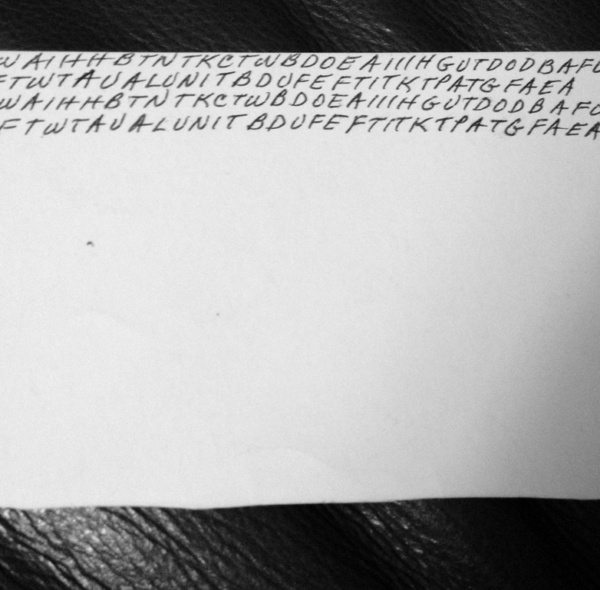 WAIHHBTNTKCTWBDOEAIIIHGUTDODBAFU
FTWTAUALUNITBDUFEFTITKTPATGFAEA
WAIHHBTNTKCTWBDOEAIIIHGUTDODBAFU
FTWTAUALUNITBDUFEFTITKTPATGFAEA